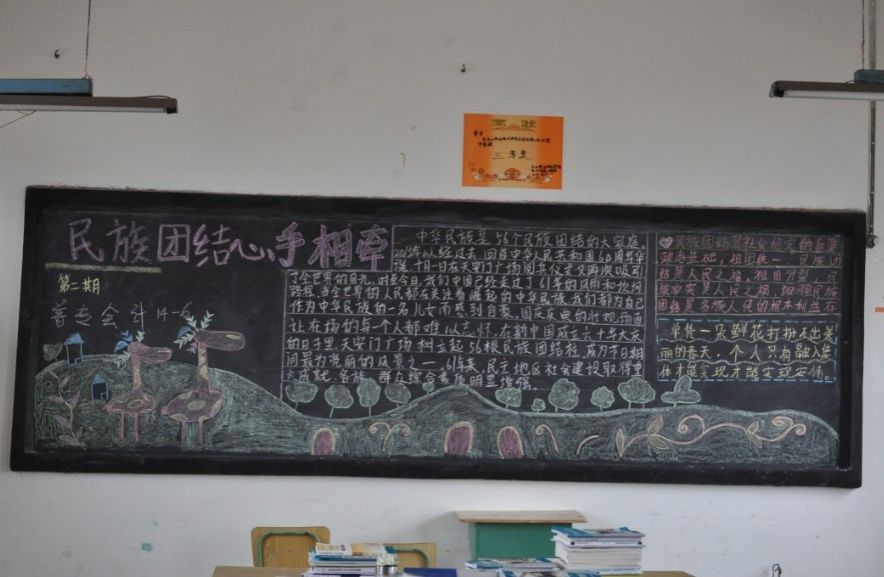 奖状
三年美
民族团结心手相牵
第二期
普专会计14-6
中华民族是56个民族团结的大家庭
2013年以经过去,回首中华人民共和国60周年华
诞,十月一日在天安门广场阅兵仪式又再次吸引
了全世界的目光。时至今日,我们中国已经走过了61年的风雨和坎坷
路程,全世界的人民都在关注着崛起的中华民族,我们都为自己
作为中华民族的一名儿女而感到自豪。国庆庆典的壮观场面
让在场的每一个人都难以忘怀。在新中国成立六十年大庆
的日子里,天安门广场树立起56根民族团结柱,成为节日期
间最为亮丽的风景之一。61年来,民主地区社会建设取得重
大成就,各族群众综合素质明显增强。
民族团结是社会稳定的重要
政治基础,祖国统一,民族团
结是人民之福,祖国分裂,民
族冲突是人民之祸,加强民族
团结是各族人民的根本利益在
单凭一朵鲜花打扮不出美
丽的春天,个人只有融入集
体才能实现才能实现宏伟。